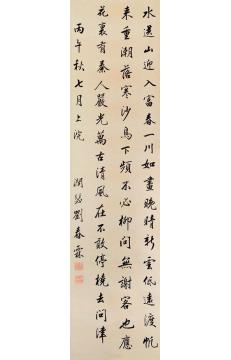 水送山迎入富春一川如畫晚晴新雲低遠渡帆
來重潮落寒沙鳥下頻未必柳間無謝客也應
花裏有秦人嚴光萬古清風在不敢停橈更問津
丙午秋七月上浣 潤琴劉春霖